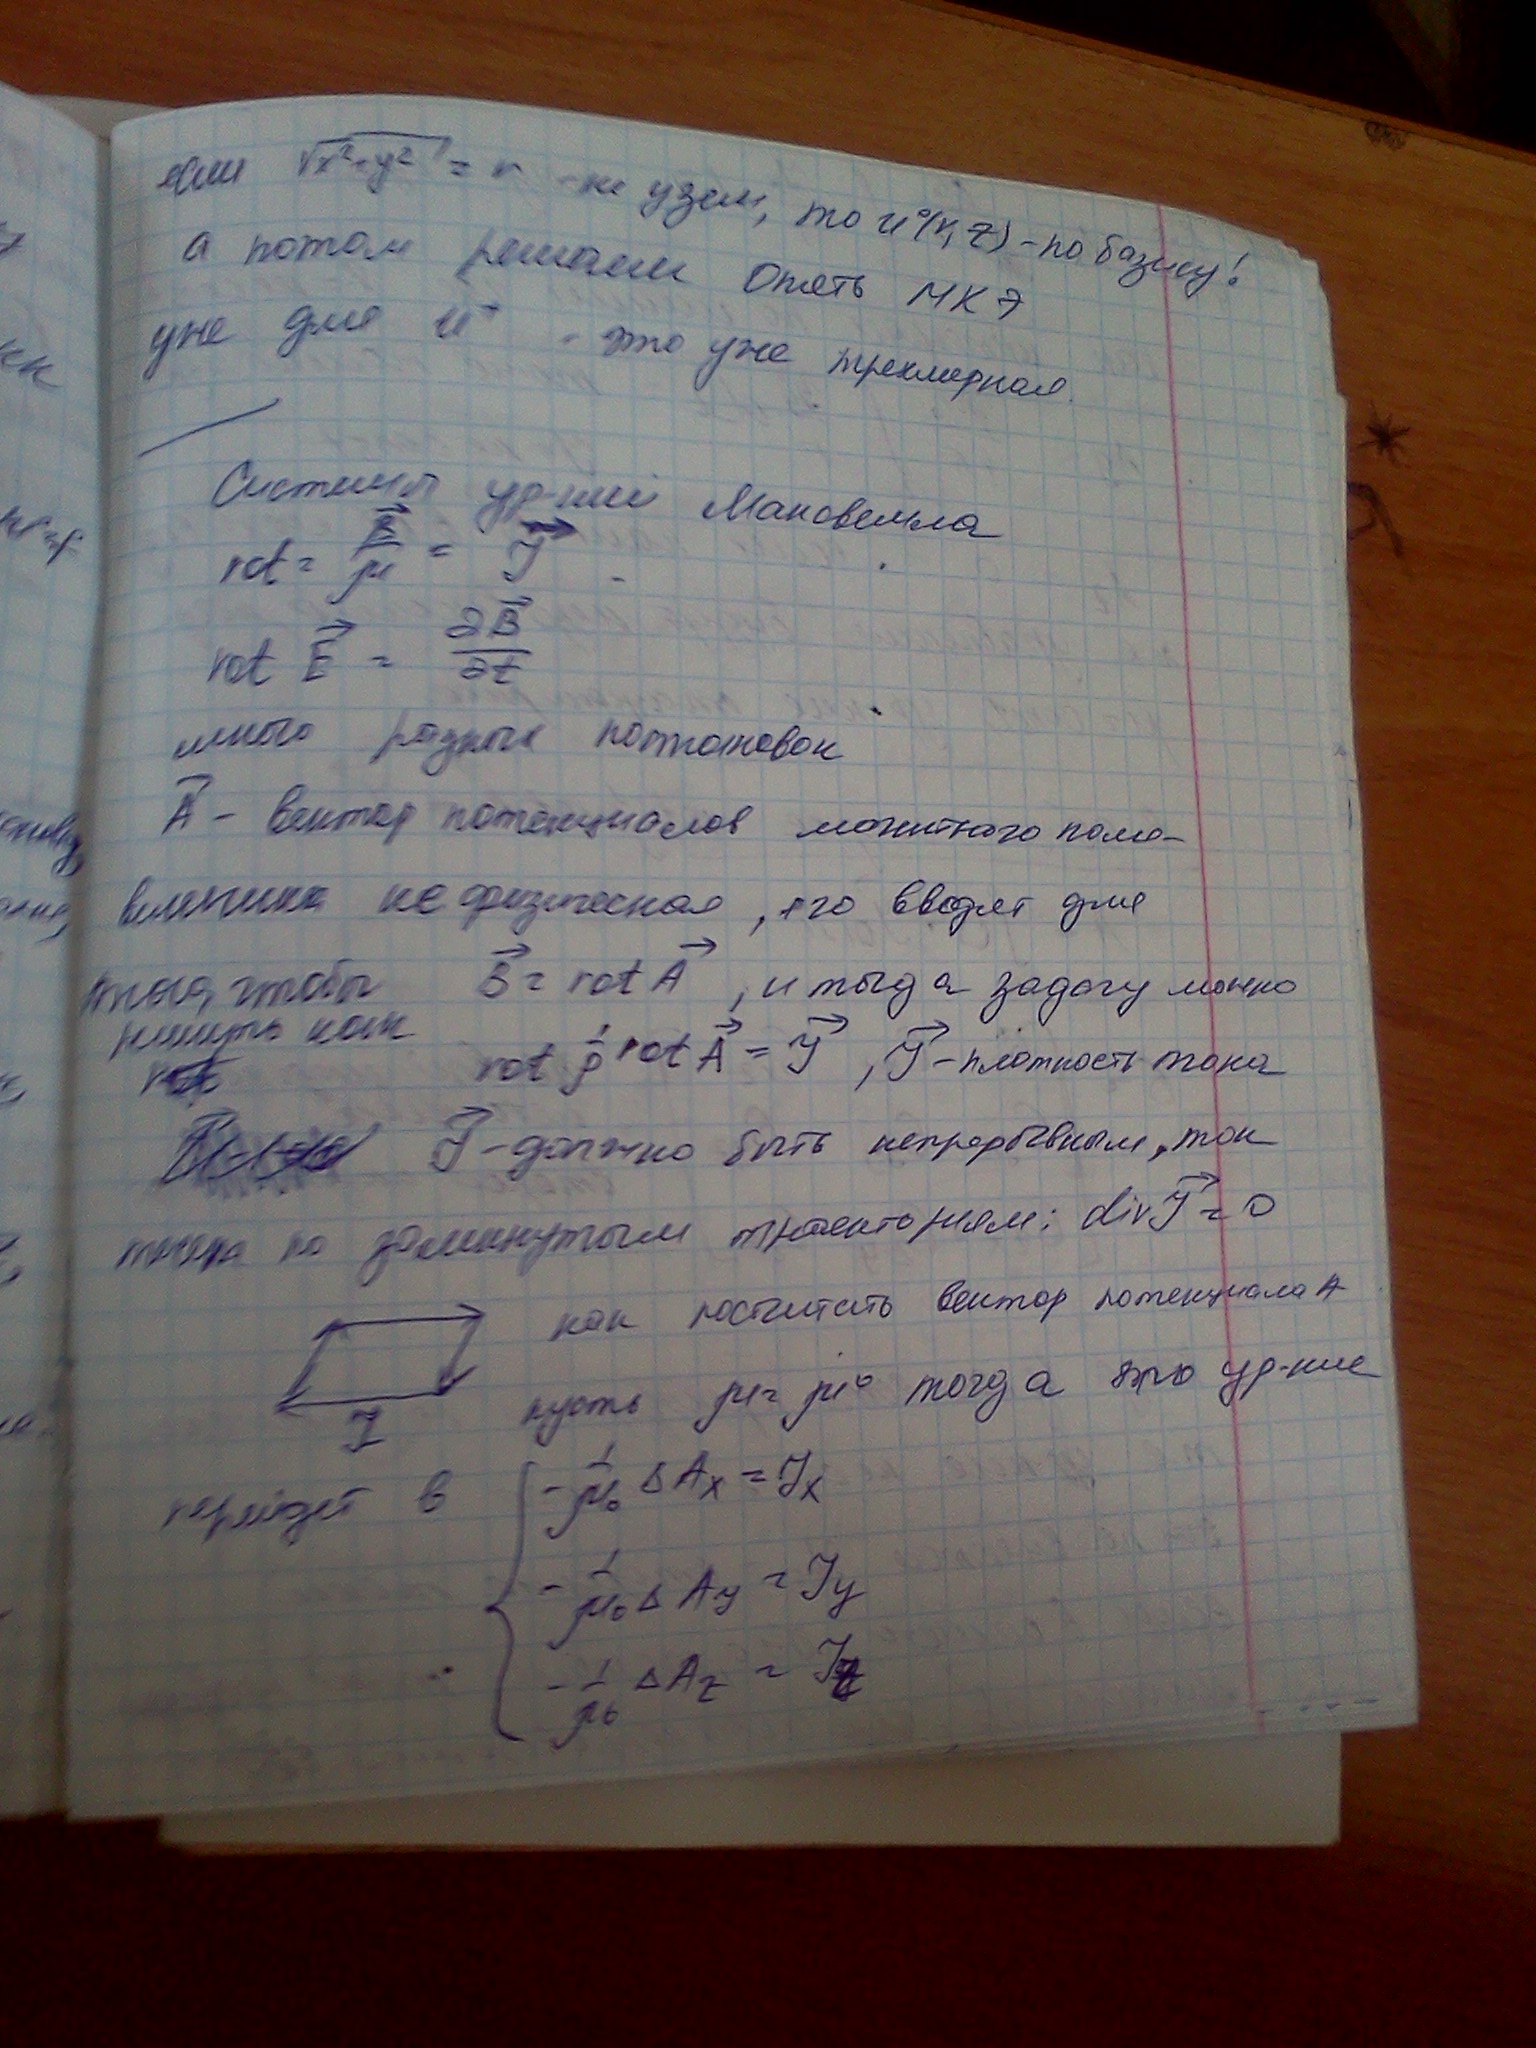 если √x²+y² = r - не узел, то u⁰(r, z) - по базису!
а потом решаем опять МКЭ
уже для u⁺ - это уже трехмерная.
Системы ур-ний Максвелла
rot = B⃗/μ = J⃗
rot E⃗ = ∂B⃗/∂t
много разных постановок
A⃗ - вектор потенциалов магнитного поля -
величина не физическая, его вводят для
того, чтобы B⃗ = rot A⃗, и тогда задачу можно
решить как
rot 1/ρ rot A⃗ = J⃗, J⃗ - плотность тока
J⃗ - должно быть непрерывным, ток
по замкнутым траекториям: div J⃗ = 0
как посчитать вектор потенциала A
J пусть μ = μ⁰ тогда это ур-ние
перейдет в { -1/μ₀ Δ Ax = Jx
-1/μ₀ Δ Ay = Jy
-1/μ₀ Δ Az = Jz